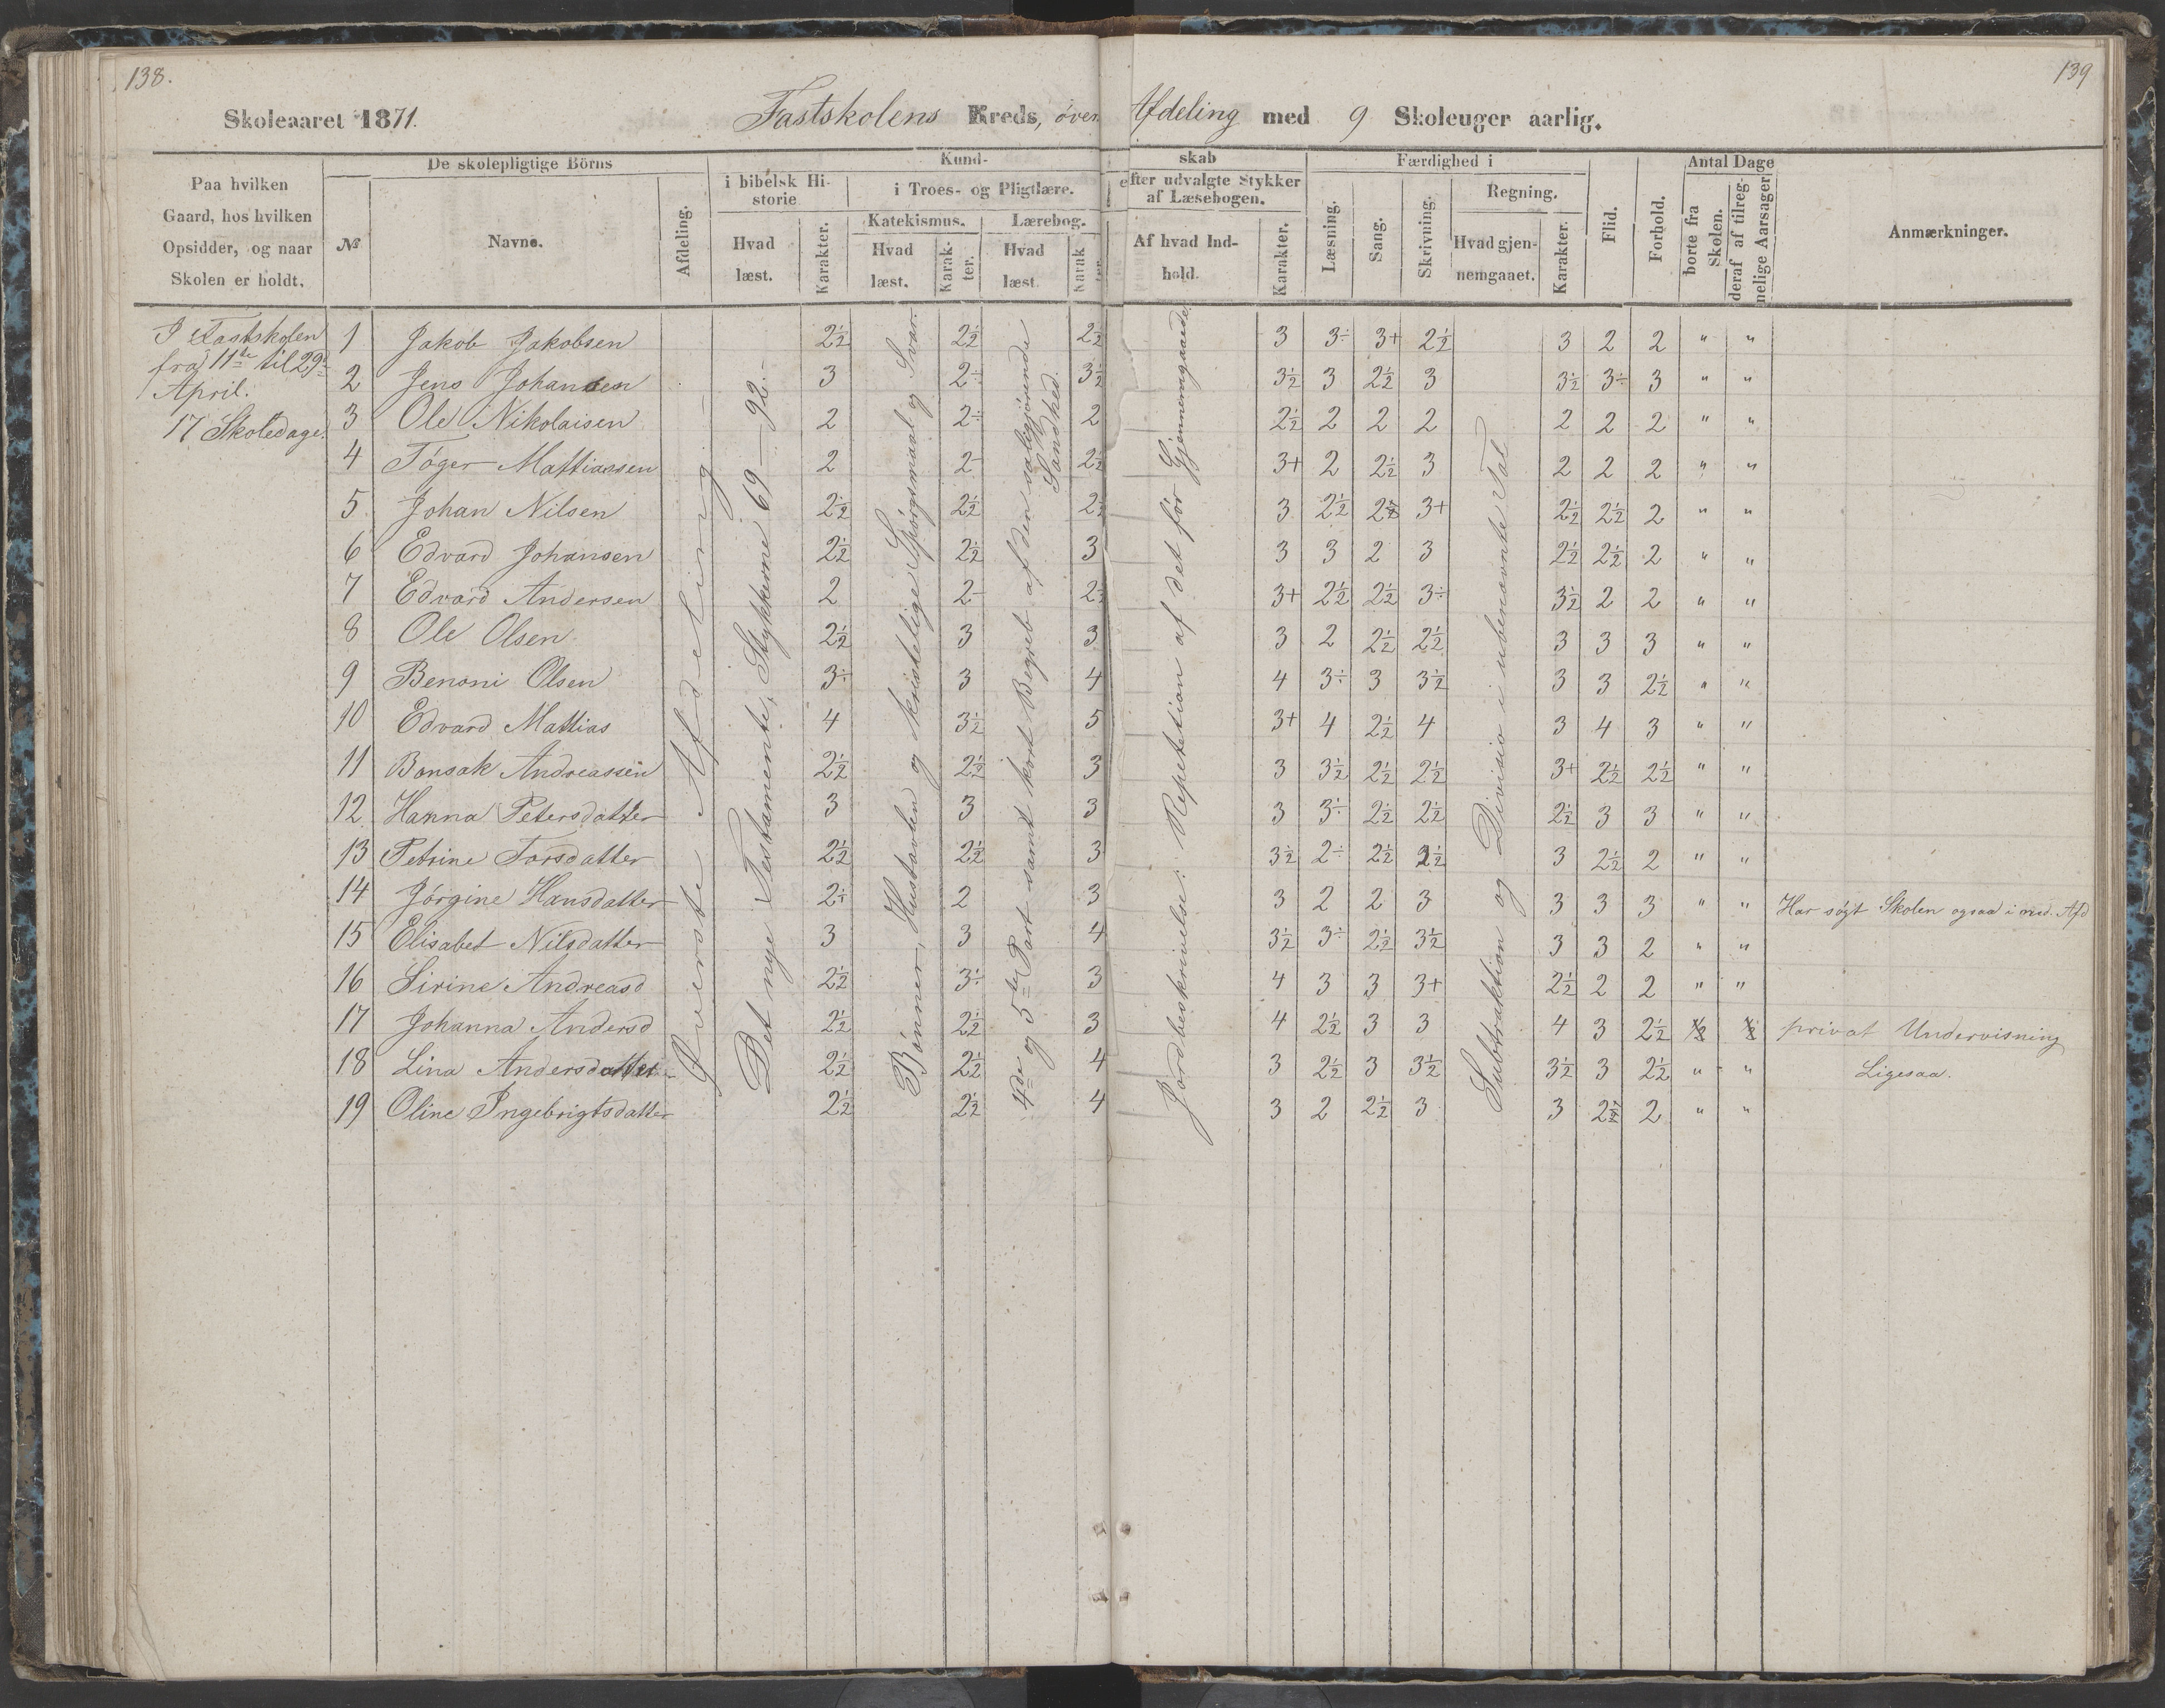 138.
139
Skoleaaret 1871. Fastskolens Kreds, över Afdeling med 9 Skoleuger aarlig.
Paa hvilken Gaard, hos hvilken Opsidder, og naar Skolen er holdt.
De skolepligtige Börns
№
Navne.
Afdeling.
Kundskab
i bibelsk Historie
Hvad læst.
Karakter.
i Troes- og Pligtlære.
Katekismus.
Hvad læst.
Karakter.
Lærebog.
Hvad læst.
Karakter.
efter udvalgte Stykker af Læsebogen.
Af hvad Indhold.
Karakter.
Færdighed i
Læsning.
Sang.
Skrivning.
Regning.
Hvad gjennemgaaet.
Karakter.
Flid.
Forhold.
Antal Dage
borte fra Skolen.
deraf af tilregnelige Aarsager
Anmærkninger.
I Fastskolen
fra 11te til 29de
April.
17 Skoledage.
Øverste Afdeling.
Det nye Testamente, Stykkerne 69 — 92.
Bønner, Hustavlen og kristelige Spörgsmaal og Svar.
4de og 5te Part samt kort Begreb af den saliggjørende Sandhed.
Jordbeskrivelse: Repetetion af det för Gjennemgaaede
Subtraktion og Divisio i ubenævnte Tal
1 Jakob Jakobsen 2½ 2½ 2½ 3 3÷ 3+ 2½ 3 2 2 " "
2 Jens Johansen 3 2÷ 3½ 3½ 3 2½ 3 3½ 3÷ 3 " "
3 Ole Nikolaisen 2 2÷ 2 2½ 2 2 2 2 2 2 " "
4 Töger Mattiassen 2 2÷ 2½ 3+ 2 2½ 3 2 2 2 " "
5 Johan Nilsen 2½ 2½ 2½ 3 2½ 2½ 3+ 2½ 2½ 2 " "
6 Edvard Johansen 2½ 2½ 3 3 3 2 3 2½ 2½ 2 " "
7 Edvard Andersen 2 2÷ 2½ 3+ 2½ 2½ 3÷ 3½ 2 2 " "
8 Ole Olsen 2½ 3 3 3 2 2½ 2½ 3 3 3 " "
9 Benoni Olsen 3÷ 3 4 4 3÷ 3 3½ 3 3 2½ " "
10 Edvard Mattias 4 3½ 5 3+ 4 2½ 4 3 4 3 " "
11 Bonsak Andreassen 2½ 2½ 3 3 3½ 2½ 2½ 3+ 2½ 2½ " "
12 Hanna Petersdatter 3 3 3 3 3÷ 2½ 2½ 2½ 3 3 " "
13 Petrine Torsdatter 2½ 2½ 3 3½ 2÷ 2½ 2½ 3 2½ 2 " "
14 Jörgine Hansdatter 2÷ 2 3 3 2 2 3 3 3 3 " " Har søgt Skolen ogsaa i ned. Afd
15 Elisabet Nilsdatter 3 3 4 3½ 3÷ 2½ 3½ 3 3 2 " "
16 Sirine Andreasd 2½ 3÷ 3 4 3 3 3+ 2½ 2 2 " "
17 Johanna Andersd 2½ 2½ 3 4 2½ 3 3 4 3 2½ privat Undervisning
18 Lina Andersdatter 2½ 2½ 4 3 2½ 3 3½ 3½ 3 2½ " " Ligesaa.
19 Oline Ingebrigtsdatter 2½ 2½ 4 3 2 2½ 3 3 2½ 2 " "